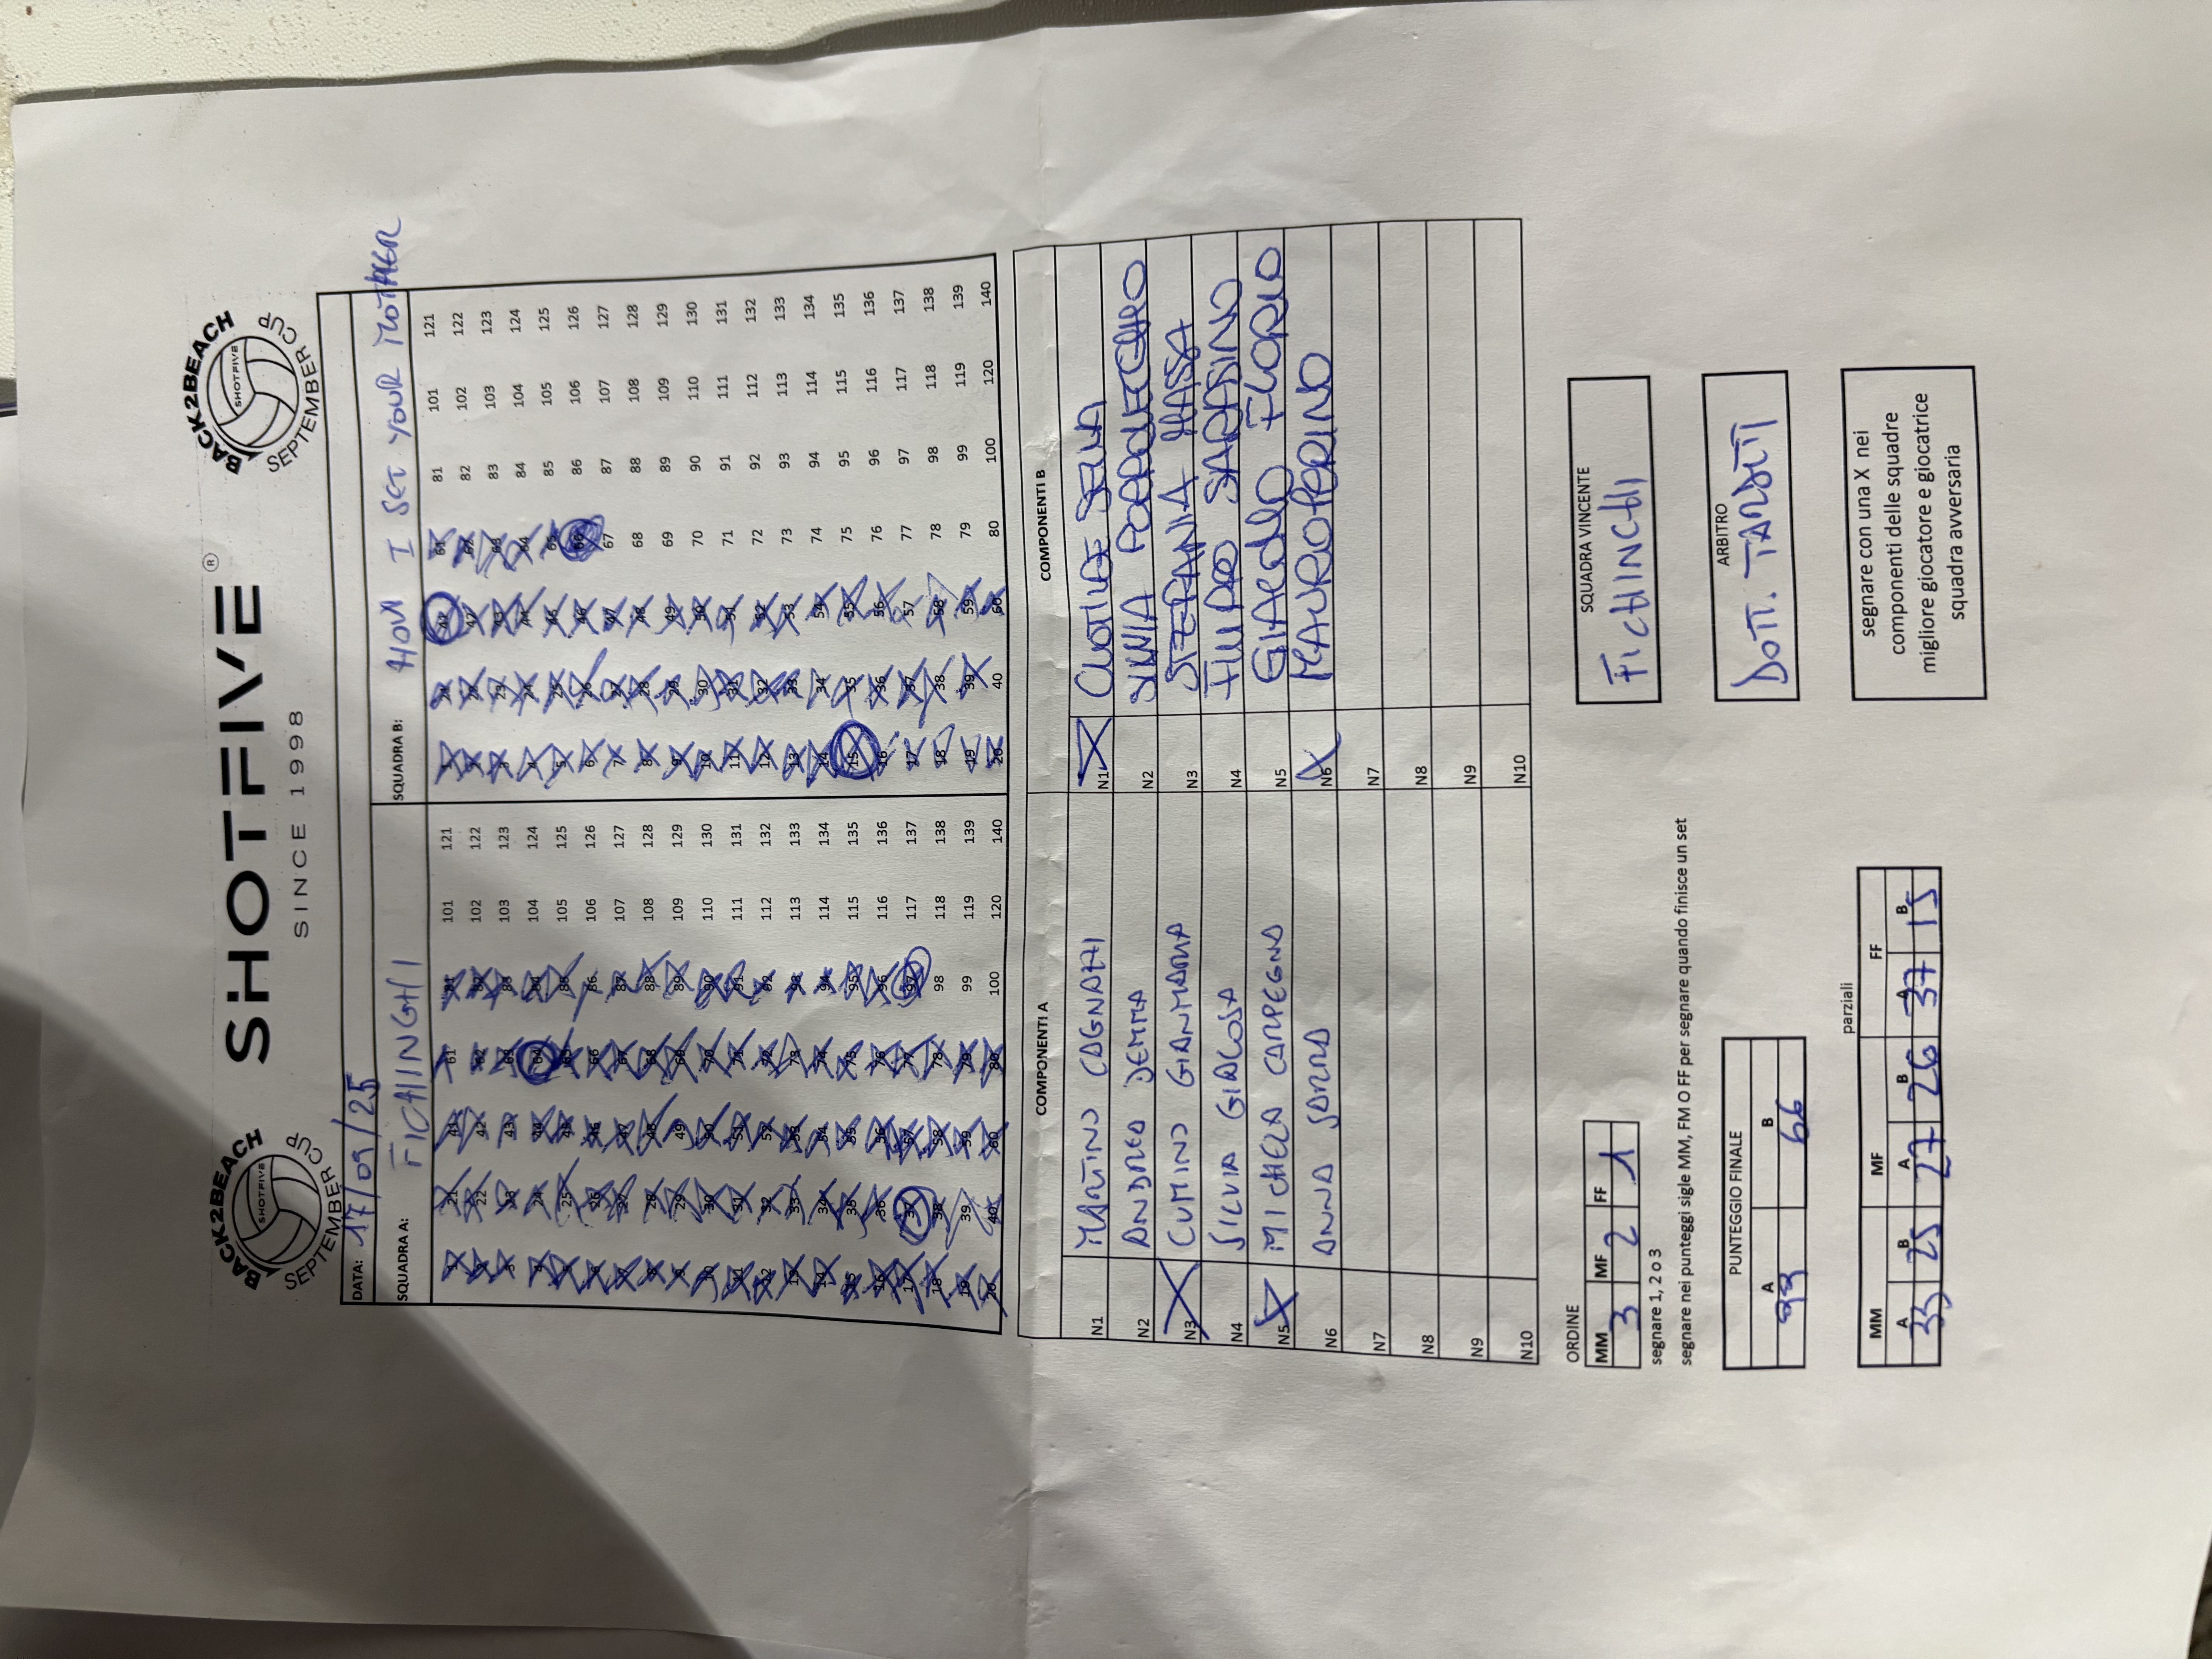 BACK2BEACH
SHOTFIVE
SEPTEMBER CUP
SHOTFIVE ®
SINCE 1998
BACK2BEACH
SHOTFIVE
SEPTEMBER CUP
DATA: 17/09/25
SQUADRA A: FICHINGHI
SQUADRA B: HOW I SET YOUR MOTHER
1 21 41 61 81 101 121 1 21 41 61 81 101 121
2 22 42 62 82 102 122 2 22 42 62 82 102 122
3 23 43 63 83 103 123 3 23 43 63 83 103 123
4 24 44 64 84 104 124 4 24 44 64 84 104 124
5 25 45 65 85 105 125 5 25 45 65 85 105 125
6 26 46 66 86 106 126 6 26 46 66 86 106 126
7 27 47 67 87 107 127 7 27 47 67 87 107 127
8 28 48 68 88 108 128 8 28 48 68 88 108 128
9 29 49 69 89 109 129 9 29 49 69 89 109 129
10 30 50 70 90 110 130 10 30 50 70 90 110 130
11 31 51 71 91 111 131 11 31 51 71 91 111 131
12 32 52 72 92 112 132 12 32 52 72 92 112 132
13 33 53 73 93 113 133 13 33 53 73 93 113 133
14 34 54 74 94 114 134 14 34 54 74 94 114 134
15 35 55 75 95 115 135 15 35 55 75 95 115 135
16 36 56 76 96 116 136 16 36 56 76 96 116 136
17 37 57 77 97 117 137 17 37 57 77 97 117 137
18 38 58 78 98 118 138 18 38 58 78 98 118 138
19 39 59 79 99 119 139 19 39 59 79 99 119 139
20 40 60 80 100 120 140 20 40 60 80 100 120 140
COMPONENTI A COMPONENTI B
N1 MARTINO CAGNAZZI N1 CLOTILDE SELLA
N2 ANDREA DEMMA N2 PORPORECCHIO
N3 CUMINO GIANMARIA N3 STEFANIA MASSA
N4 SILVIA GIACOSA N4 FILIPPO SARACINO
N5 MICHELA CAMPEGNO N5 GIACOMO FLORIO
N6 ANNA SARRA N6 MAURO PERINO
N7 N7
N8 N8
N9 N9
N10 N10
ORDINE
MM MF FF
3 2 1
segnare 1, 2 o 3
segnare nei punteggi sigle MM, FM O FF per segnare quando finisce un set
SQUADRA VINCENTE
FICHINGHI
PUNTEGGIO FINALE
A B
99 66
ARBITRO
DOTT. TARDITI
parziali
MM MF FF
A B A B A B
33 25 27 26 37 15
segnare con una X nei
componenti delle squadre
migliore giocatore e giocatrice
squadra avversaria